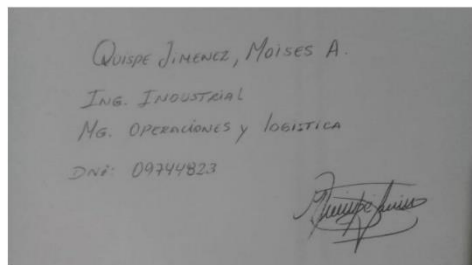 QUISPE JIMENEZ, MOISES A.
ING. INDUSTRIAL
MG. OPERACIONES y LOGISTICA
DNI: 09744823